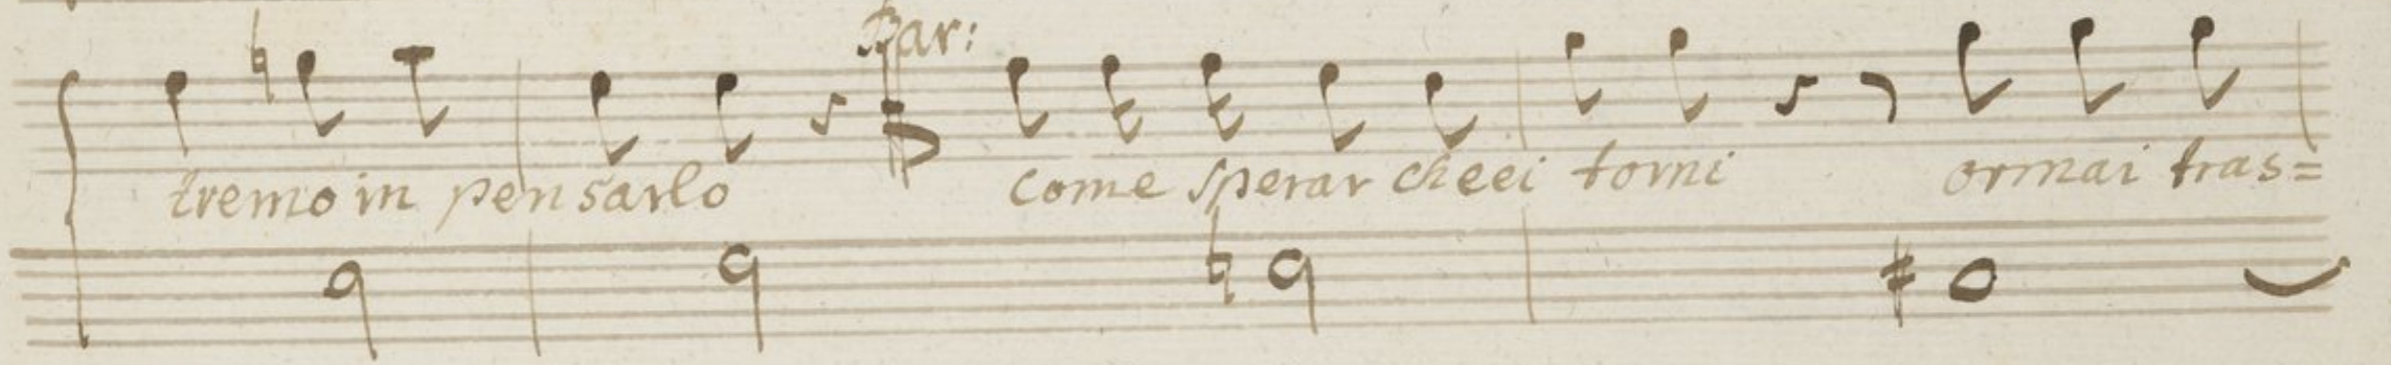 Bar:
tremo in pensarlo come sperar che ei torni ormai tras=